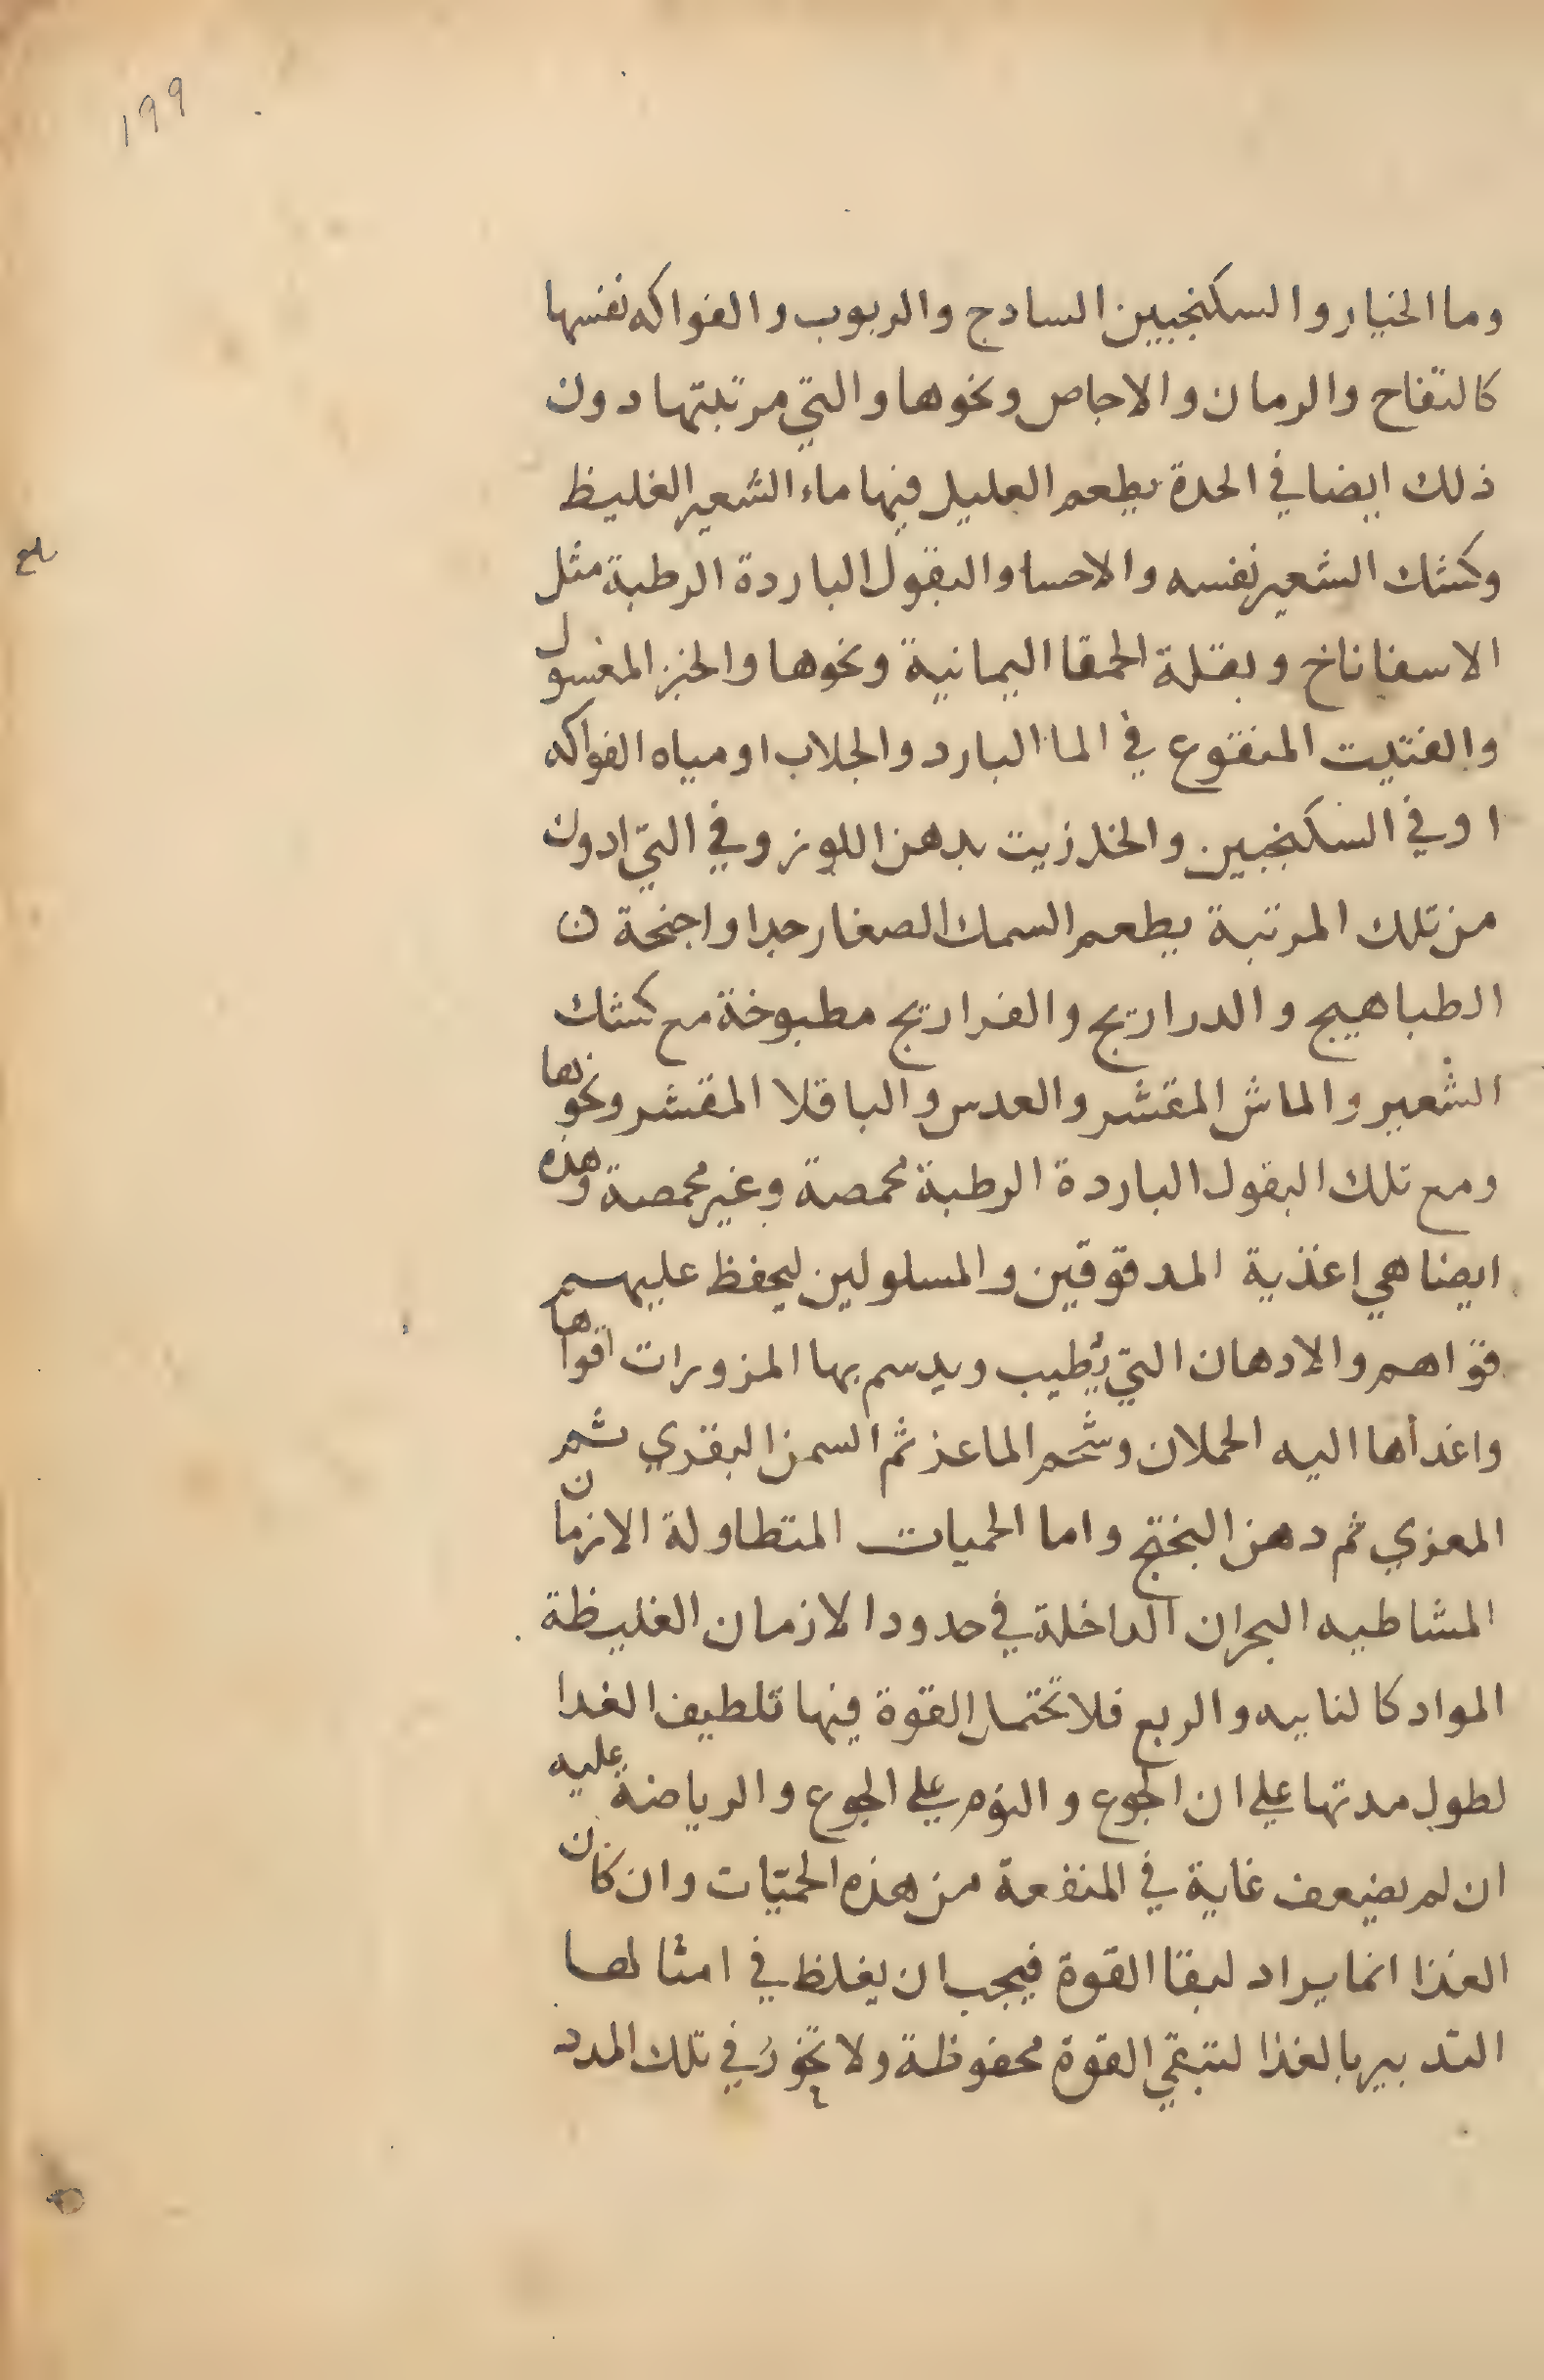 ١٩٩
وما الخيار والسكنجبين السادج والربوب والفواكه نفسها
كالتفاح والرمان والاجاص ونحوها والتي مرتبتها دون
ذلك ايضا في الحدة يطعم العليل فيها ماء الشعير الغليظ
وكشك الشعير نفسه والاحسا والبقول الباردة الرطبة مثل
الاسفاناخ وبقلة الحمقا اليمانية ونحوها والخبز المغسول
والفتيت المنقوع في الما البارد والجلاب او مياه الفواكه
او في السكنجبين والخل زيت بدهن اللوز وفي التي ادون
من تلك المرتبة يطعم السمك الصغار جدا واجنحة ن
الطباهيج والدراريج والفراريج مطبوخة مع كشك
الشعير والماش المقشر والعدس والباقلا المقشر ونحوها
ومع تلك البقول الباردة الرطبة محمصة وغير محمصة وهذه
ايضا هي اغذية المدقوقين والمسلولين ليحفظ عليهم
قواهم والادهان التي يُطيب ويدسم بها المزورات اقواها
واغداها اليه الحملان وشحم الماعز ثم السمن البقري ثم
المعزي ثم دهن البخيج واما الحميات المتطاولة الازمان
المشاطيه البحران الداخلة في حدود الازمان الغليظة
المواد كالنابيه والربع فلا تحتمل القوة فيها تلطيف الغدا
لطول مدتها علي ان الجوع والنوم علي الجوع والرياضة عليه
ان لم يضيعف غاية في المنفعة من هذه الحميّات وان كان
الغذا انما يراد لبقا القوة فيجب ان يغلظ في امثالها
التدبير بالغذا لتبقي القوة محفوظة ولا تخورُ في تلك المدد